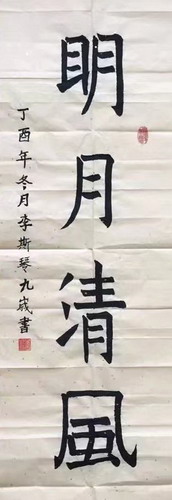 明月清风
丁酉年冬月李斯琴九歲書